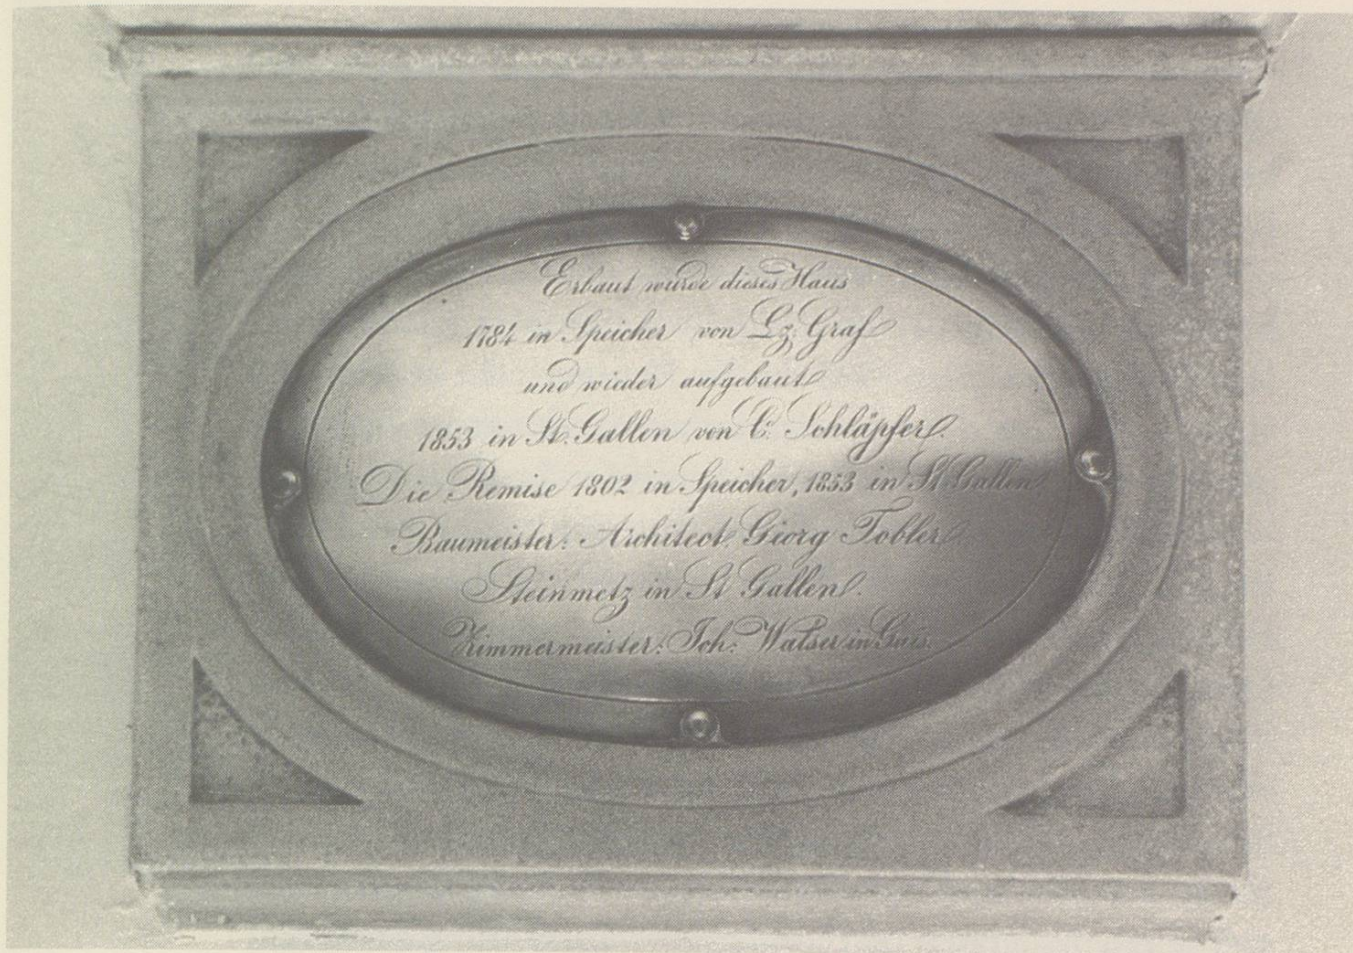 Erbaut wurde dieses Haus
1784 in Speicher von Lz: Graf
und wieder aufgebaut
1853 in St. Gallen von C. Schläpfer.
Die Remise 1802 in Speicher, 1853 in St. Gallen
Baumeister: Architect. Georg Tobler
Steinmetz in St Gallen.
Zimmermeister: Joh: Walser in Gais.